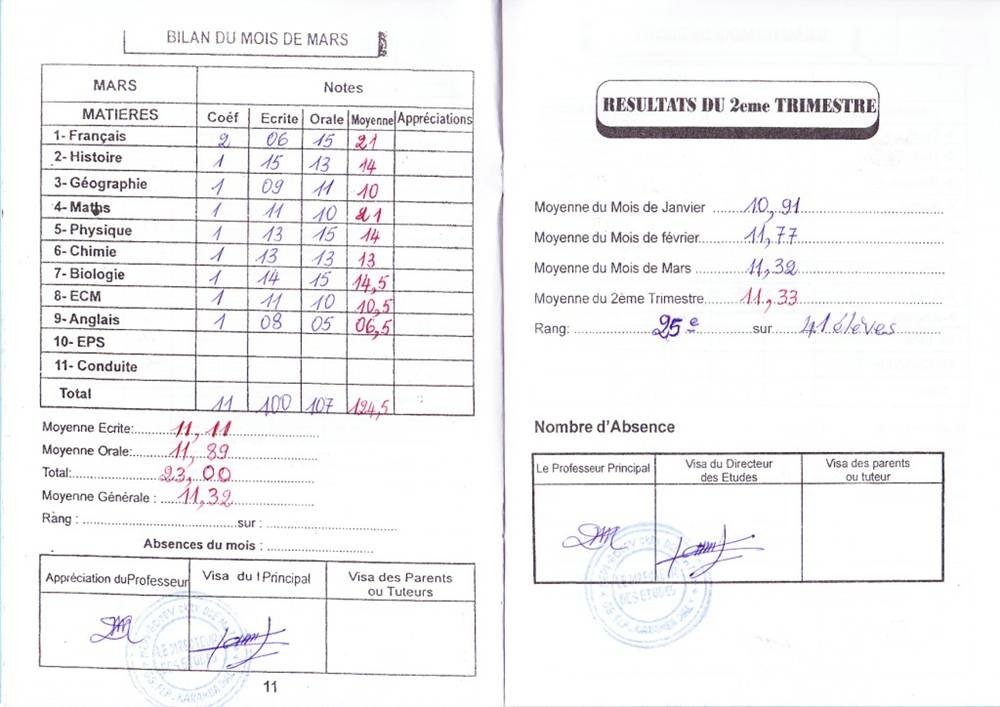 BILAN DU MOIS DE MARS
MARS Notes
MATIERES Coéf Ecrite Orale Moyenne Appréciations
1- Français 2 06 15 21
2- Histoire 1 15 13 14
3- Géographie 1 09 11 10
4- Maths 1 11 10 21
5- Physique 1 13 15 14
6- Chimie 1 13 13 13
7- Biologie 1 14 15 14,5
8- ECM 1 11 10 10,5
9- Anglais 1 08 05 06,5
10- EPS
11- Conduite
Total 11 100 107 124,5
Moyenne Ecrite: 11,11
Moyenne Orale: 11,89
Total: 23,00
Moyenne Générale : 11,32
Rang : sur :
Absences du mois :
Appréciation du Professeur Visa du ! Principal Visa des Parents
ou Tuteurs
LE DIRECTEUR
DES ETUDES
11
RESULTATS DU 2eme TRIMESTRE
Moyenne du Mois de Janvier 10,91
Moyenne du Mois de février 11,77
Moyenne du Mois de Mars 11,32
Moyenne du 2ème Trimestre 11,33
Rang: 25e sur 41 élèves
Nombre d'Absence
Le Professeur Principal Visa du Directeur Visa des parents
des Etudes ou tuteur
LE DIRECTEUR
DES ETUDES